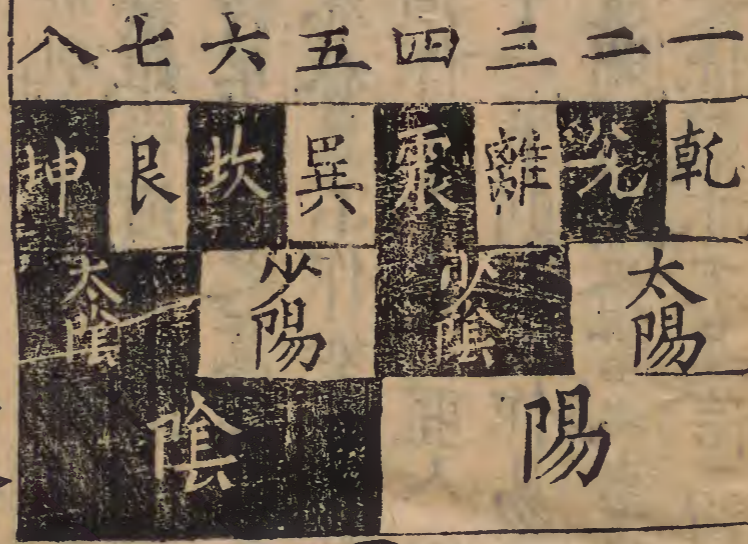 一 二 三 四 五 六 七 八
乾 兌 離 震 巽 坎 艮 坤
太陽 少陰 少陽 太陰
陽 陰